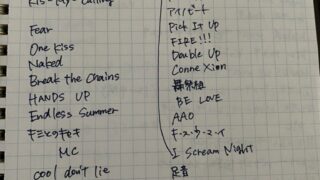 Kis-My-Calling
Fear
One Kiss
Naked
Break the Chains
HANDS UP
Endless Summer
キミとのキセキ
MC
cool don't lie
アイノビート
Pick It Up
FIRE!!!
Double Up
ConneXion
BE LOVE
AAO
F・ス・ウ・マ・イ
I Scream Night
足音